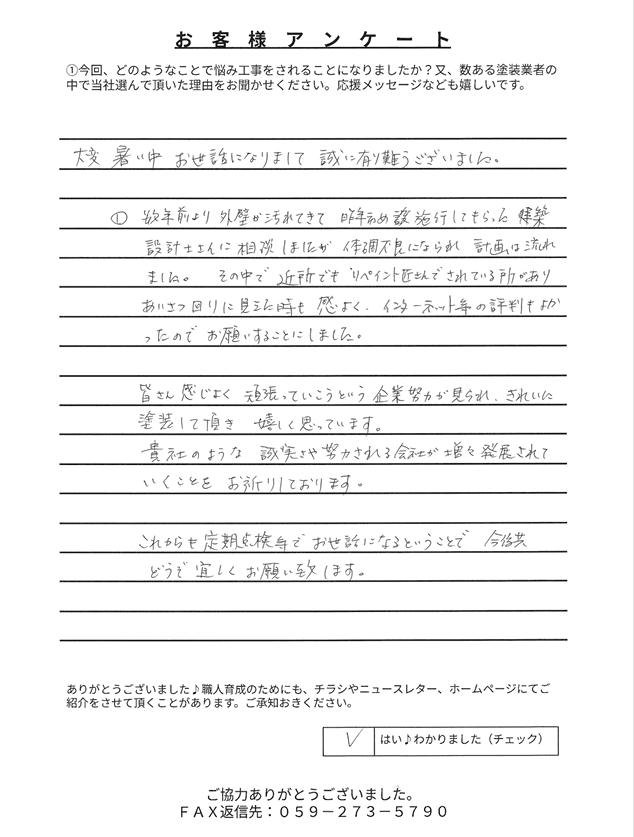 お客様アンケート
①今回、どのようなことで悩み工事をされることになりましたか？又、数ある塗装業者の
中で当社選んで頂いた理由をお聞かせください。応援メッセージなども嬉しいです。
大変 暑い中 お世話になりまして 誠に有り難うございました。
① 数年前より 外壁が汚れてきて 昨年 施行してもらった 建築
設計士さんに 相談しましたが 体調不良になられ 計画は流れ
ました。 その中で 近所でも リペイント匠さんでされている所があり
あいさつ回りに見えた時も 感よく、インターネット等の評判もよか
ったので お願いすることにしました。
皆さん 感じよく 頑張っていこうという 企業努力が見られ、きれいに
塗装して頂き 嬉しく思っています。
貴社のような 誠実さや努力される会社が 増々発展されて
いくことを お祈りしております。
これからも 定期点検等で お世話になるということで 今後共
どうぞ 宜しく お願い致します。
ありがとうございました♪職人育成のためにも、チラシやニュースレター、ホームページにてご
紹介をさせて頂くことがあります。ご承知おきください。
✓ はい♪わかりました（チェック）
ご協力ありがとうございました。
ＦＡＸ返信先：０５９－２７３－５７９０